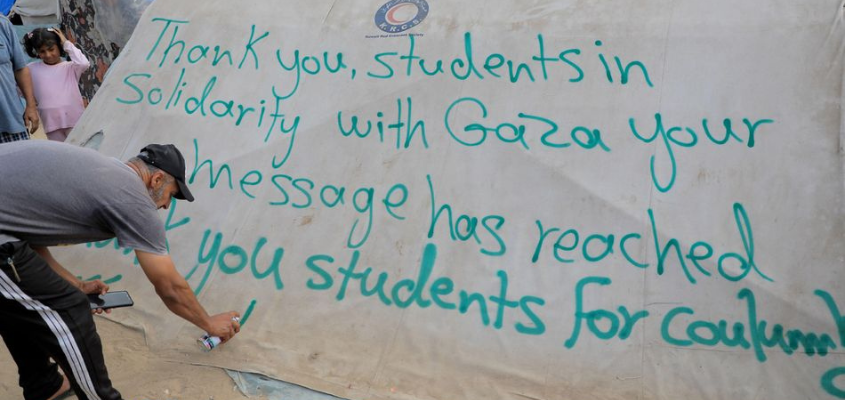 Thank you, students in
Solidarity with Gaza your
message has reached
you students for coulumb